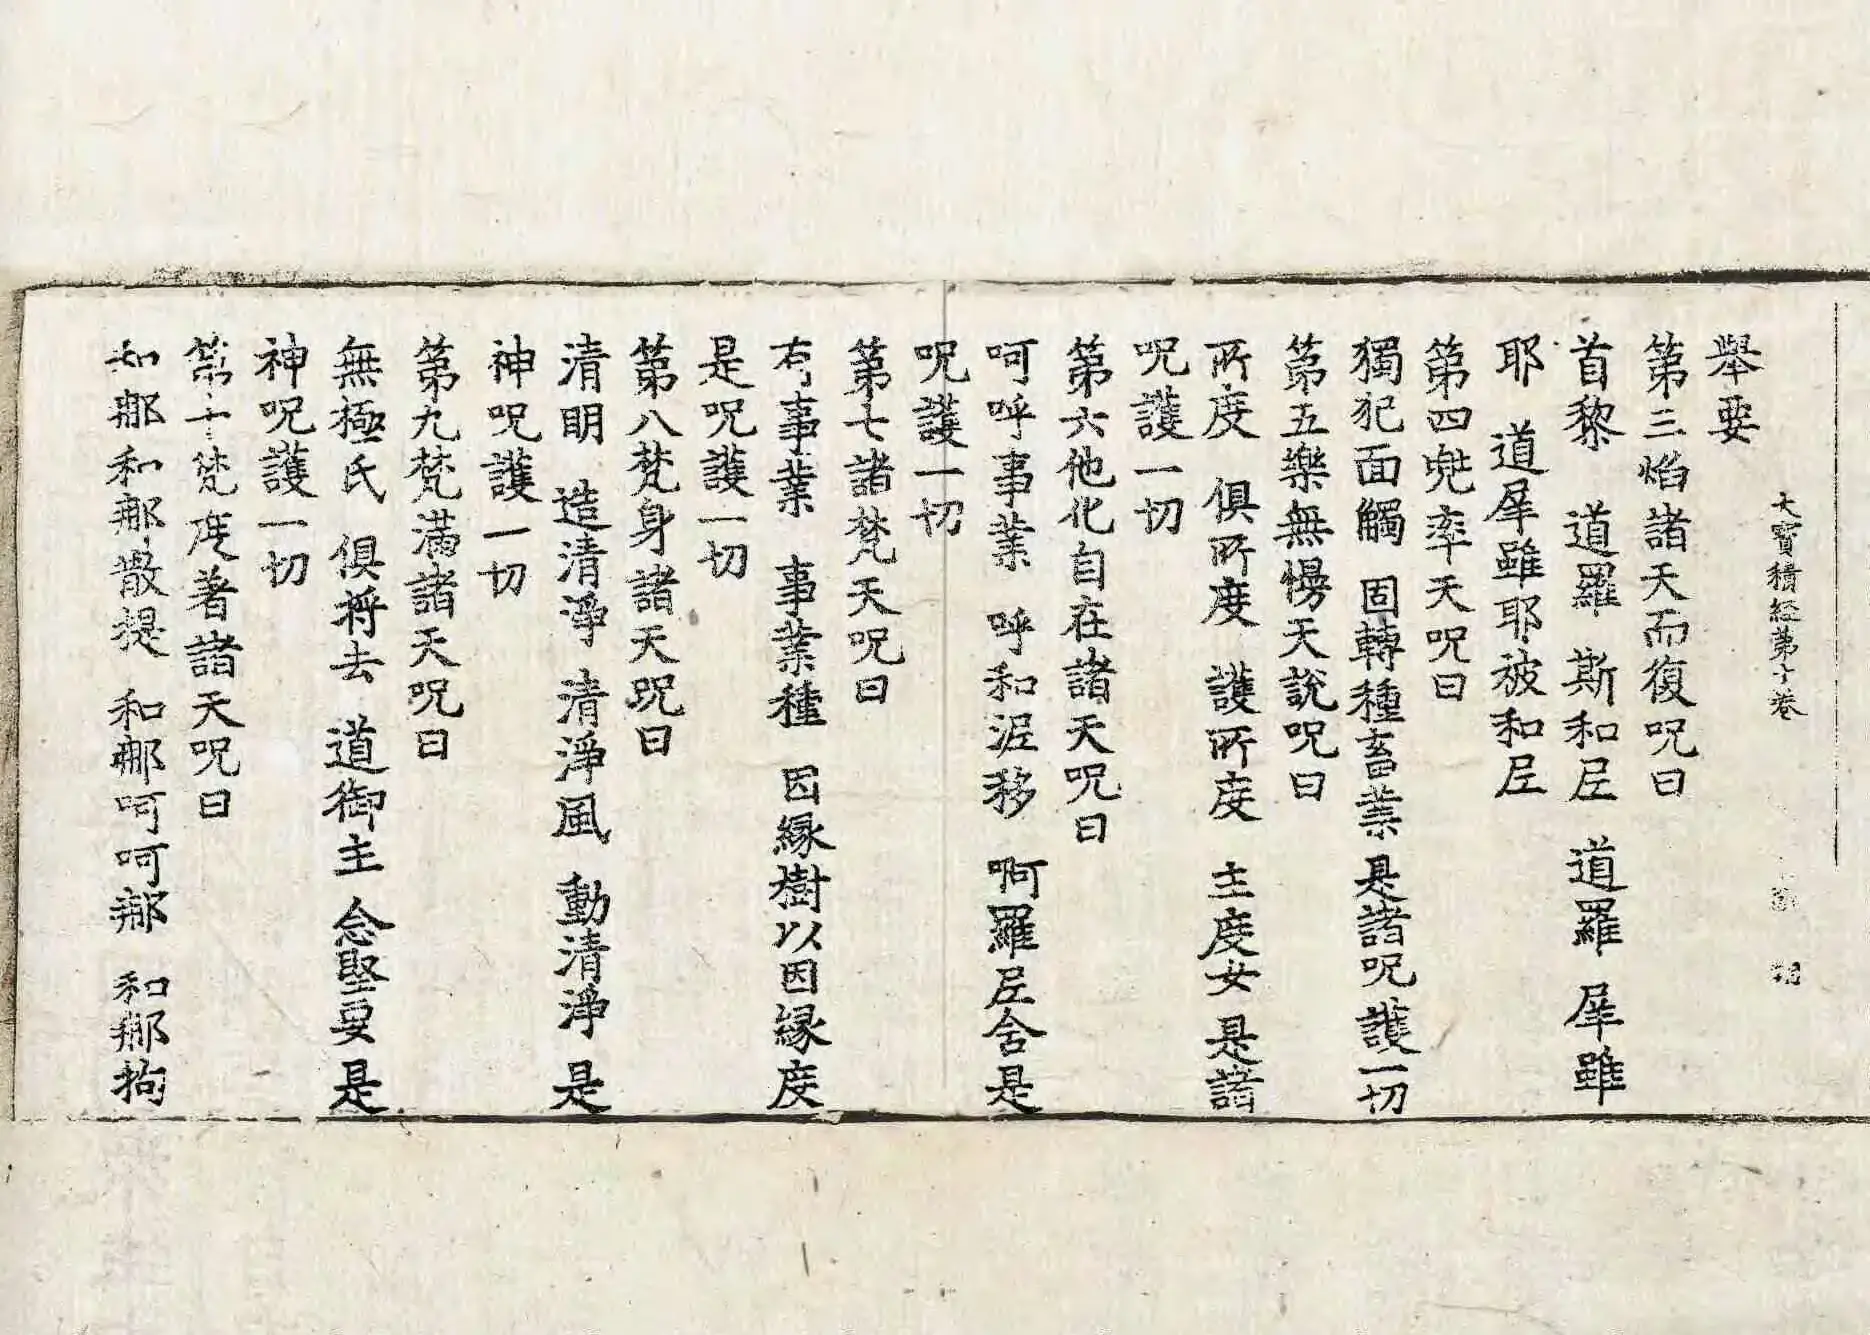 大寶積經第十卷
舉要
第三焰諸天而復呪曰
首黎 道羅 斯和𡰱 道羅 犀雖
耶 道犀雖耶被和𡰱
第四兜率天呪曰
獨犯面觸 固轉種畜業是諸呪護一切
第五樂無慢天說呪曰
所度 俱所度 護所度 主度女是諸
呪護一切
第六他化自在諸天呪曰
呵呼事業 呼和泥移 啊羅𡰱舍是
呪護一切
第七諸梵天呪曰
有事業 事業種 因緣樹以因緣度
是呪護一切
第八梵身諸天呪曰
清明 造清淨 清淨風 動清淨是
神呪護一切
第九梵滿諸天呪曰
無極氏 俱将去 道御主 念堅要是
神呪護一切
第十梵度著諸天呪曰
如那和那散提 和那呵呵那 和那拘